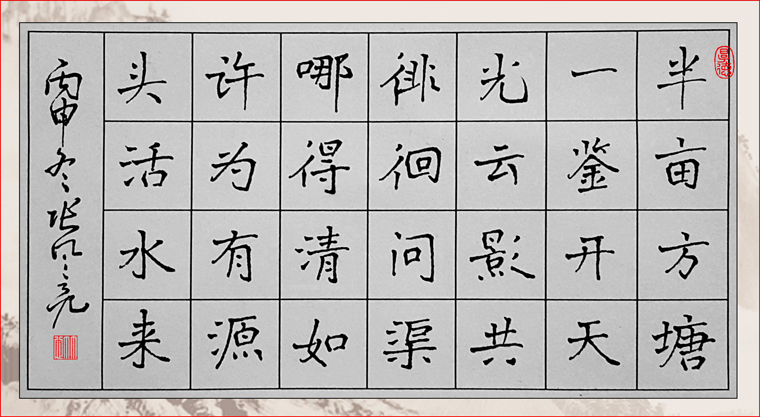 半亩方塘
一鉴开天
光云影共
徘徊问渠
哪得清如
许为有源
头活水来
丙申冬张凤亮